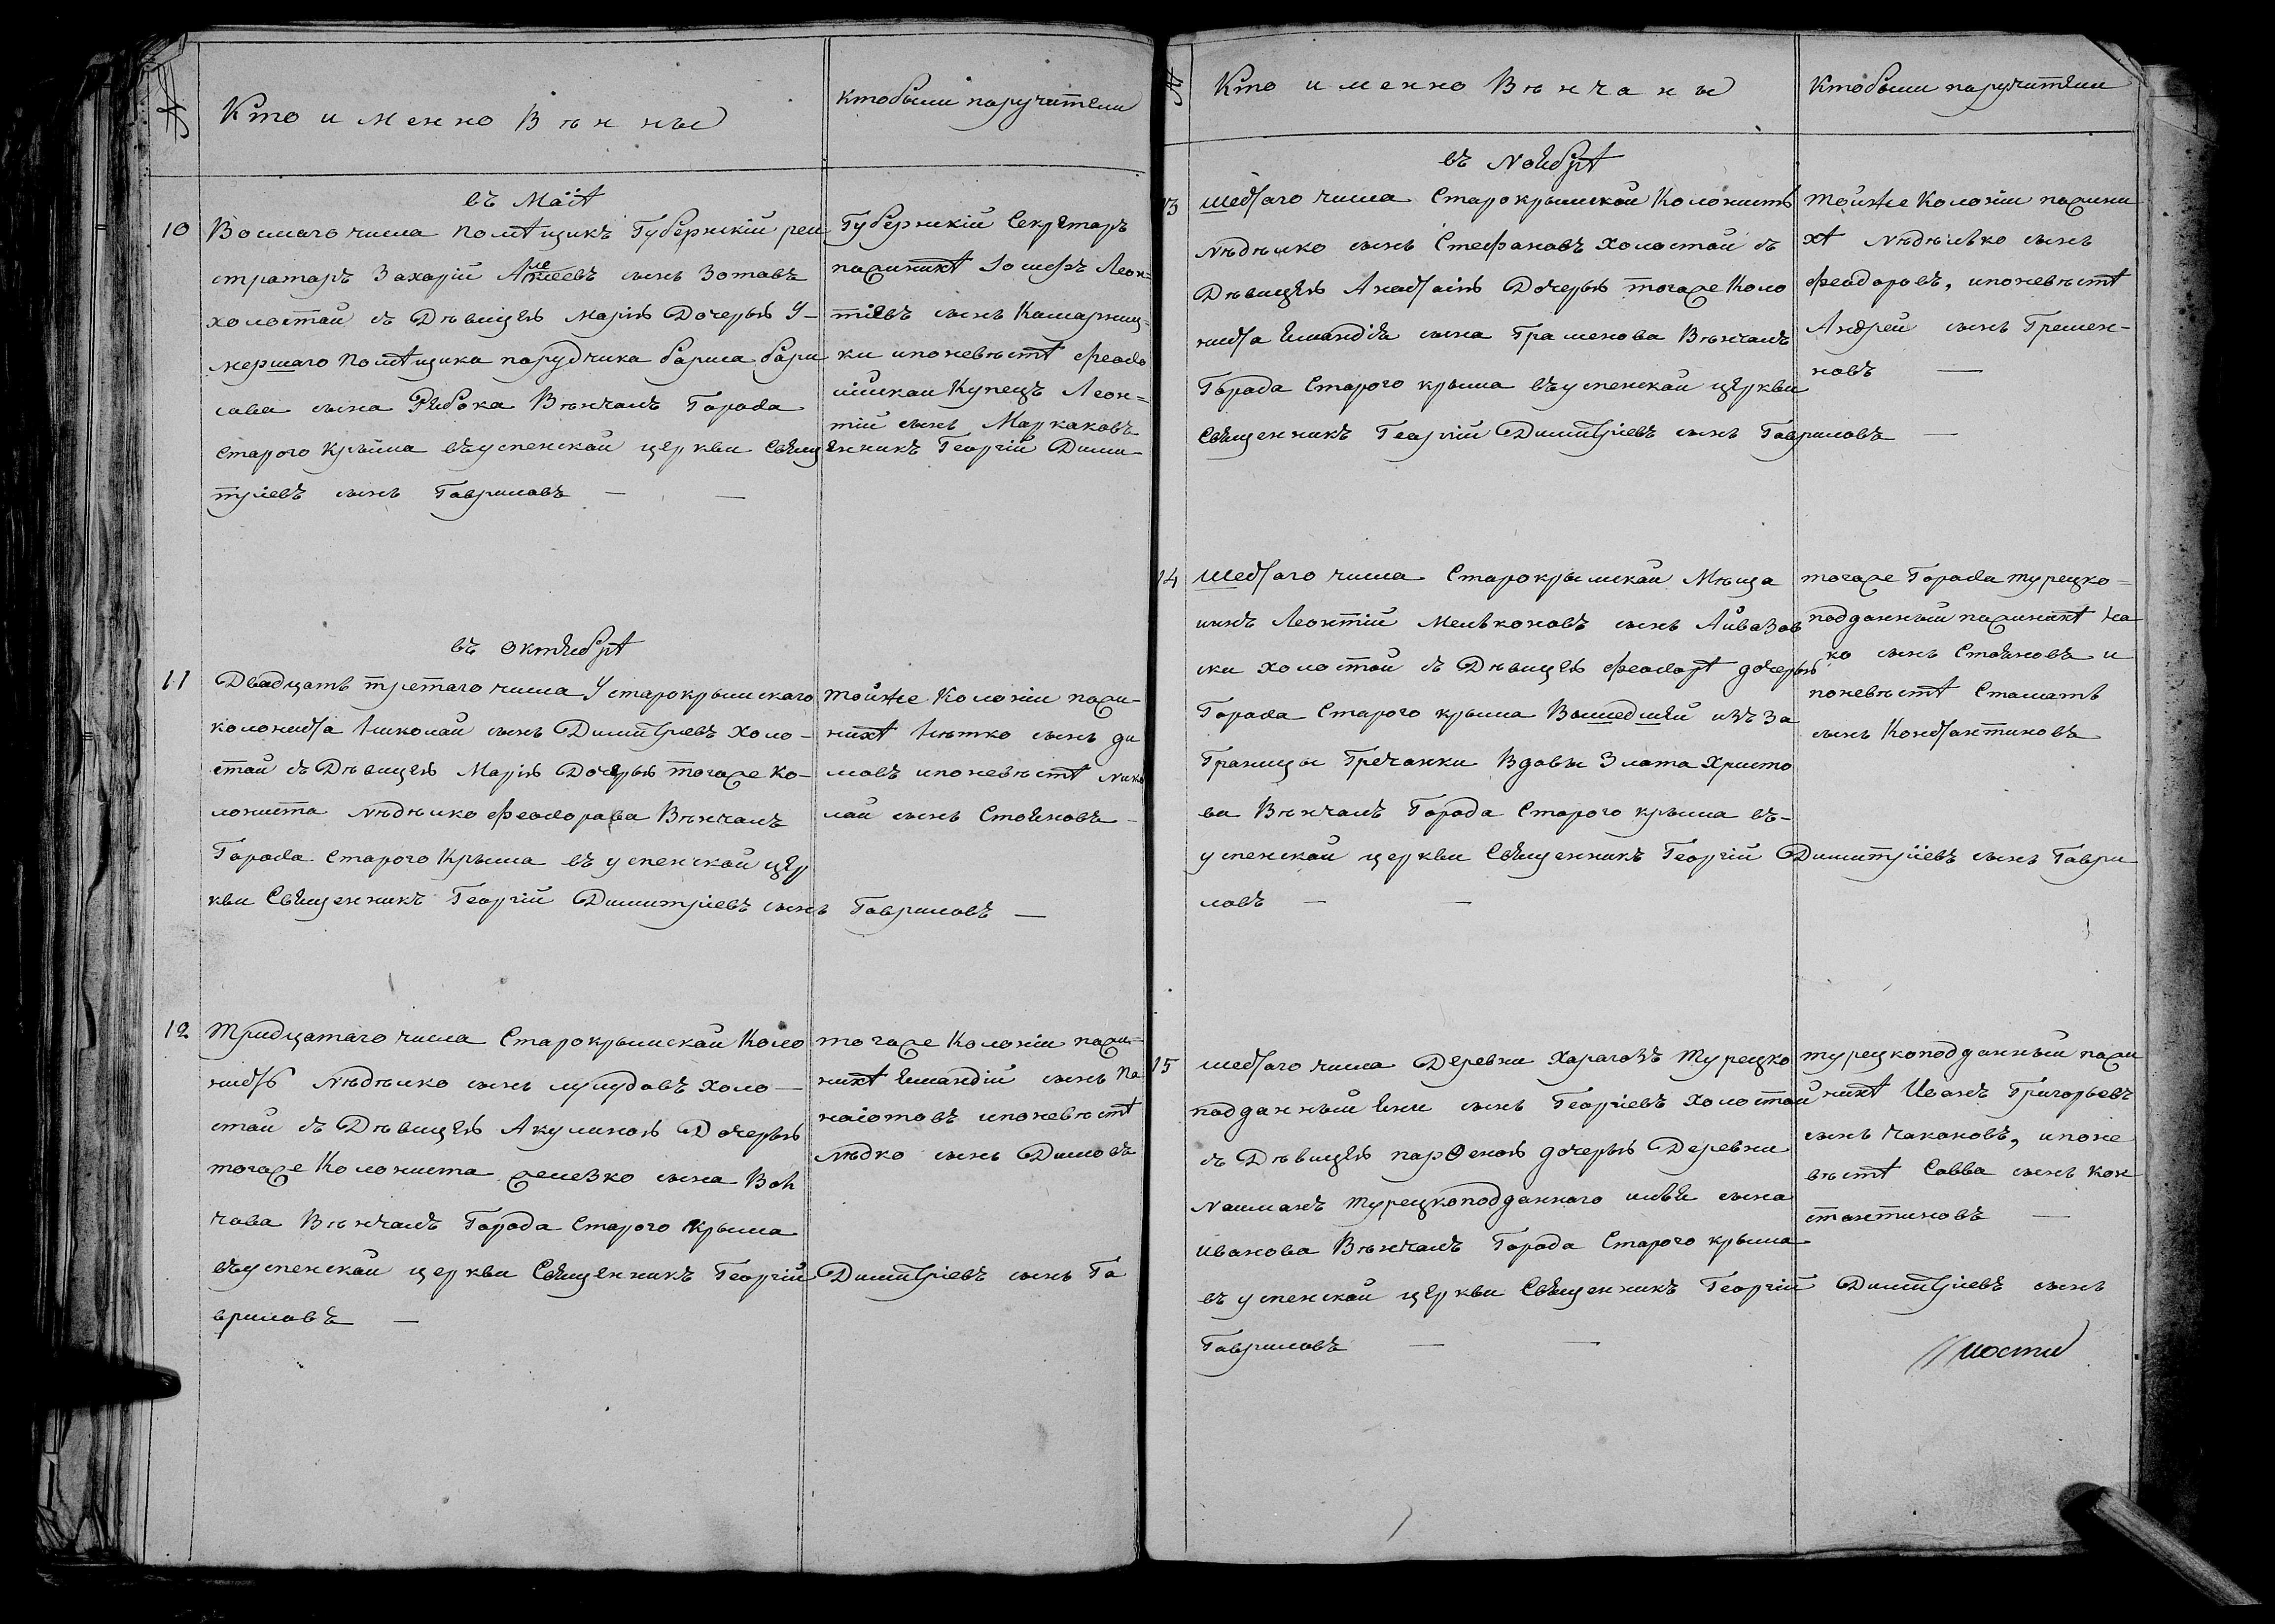 №
Кто именно Вѣнчаны
Кто были поручители
въ Маiѣ
10
Восмаго числа Помѣщикъ Губернскiй реи
страторъ Захарiй Алеѯеевъ сынъ Зотовъ
холостой съ Дѣвицея Марiя Дочерья У-
мершаго Помѣщика порудчика бориса бори
сова сына Рибока Вѣнчалъ Города
Старого Крыма въ успенской церкви Священникъ Георгiй Дими-
трiевъ сынъ Гавриловъ — —
Губернскiй Секретаръ
по женихѣ Iосифъ Леон=
тiевъ сынъ Комарниц-
ки и по невѣстѣ феодо
сiйскои Купецъ Леон=
тiй сынъ Маркаковъ
въ октябрѣ
11
Двадцатъ третаго числа Устарокрымскаго
колониста Николай сынъ Димитрiевъ Холо-
стой съ Дѣвицея Марiя Дочерья тогоже Ко-
лониста Нѣдѣлко феодорова Вѣнчалъ
Города Старого Крыма въ успенской цер
кви Священникъ Георгiй Димитрiевъ сынъ Гавриловъ —
тойже Колонiи по же-
нихѣ Нѣтко сынъ ди
мовъ и по невѣстѣ Нико
лай сынъ Стояновъ
12
Тридцатаго числа Старокрымской Коло
нистъ Нѣдѣлко сынъ Холо-
стой съ Дѣвицея Акулиноя Дочерья
тогоже Колониста железко сына Вол
чова Вѣнчалъ Города Старого Крыма
въ успенской церкви Священникъ Георгiй Димитрiевъ сынъ Га
вриловъ —
тогоже Колонiи по же-
нихѣ сынъ Па
наiотовъ и по невѣстѣ
Нѣдко сынъ Димовъ
№
Кто именно Вѣнчаны
Кто были поручители
въ Ноябрѣ
13
шестаго числа Старокрымской Колонистъ
Нѣдѣлко сынъ Стефановъ холостой съ
Дѣвицея Анастасiя Дочерья тогоже Коло
ниста сына Граменова Вѣнчалъ
Города Старого крыма въ успенской церкви
Священникъ Георгiй Димитрiевъ сынъ Гавриловъ —
тойже Колонiи по жени
хѣ Нѣдѣлько сынъ
феодоровъ, и по невѣстѣ
Андрей сынъ Гремен-
новъ —
14
Шестаго числа Старокрымскаи Мѣща
нинъ Леонтiй Мельконовъ сынъ Айвазов
ски холостой съ Дѣвицея феодорѣ дочерья
Города Старого крыма Вышедшеи изъ За
Границы Гречанки Вдовы Злата Христо
ва Вѣнчалъ Города Старого крыма въ-
успенской церкви Священникъ Георгiй Димитрiевъ сынъ Гаври
ловъ — —
тогоже Города турецко=
подданный по женихѣ На
ко сынъ Стояновъ и
по невѣстѣ Стаматъ
сынъ Константиновъ
15
шестаго числа Деревни Харагозъ Турецко
подданный Яни сынъ Георгiевъ холостой
съ Дѣвицея парѳеноя дочерья Деревни
Наиманъ Турецкоподданного сына
Иванова Вѣнчалъ Города Старого крыма
въ успенской церкви Священникъ Георгiй Димитрiевъ сынъ
Гавриловъ — —
турецкоподданный по же
нихѣ Иванъ Григорьевъ
сынъ Чакановъ, и по не
вѣстѣ Савва сынъ Кон
стантиновъ —